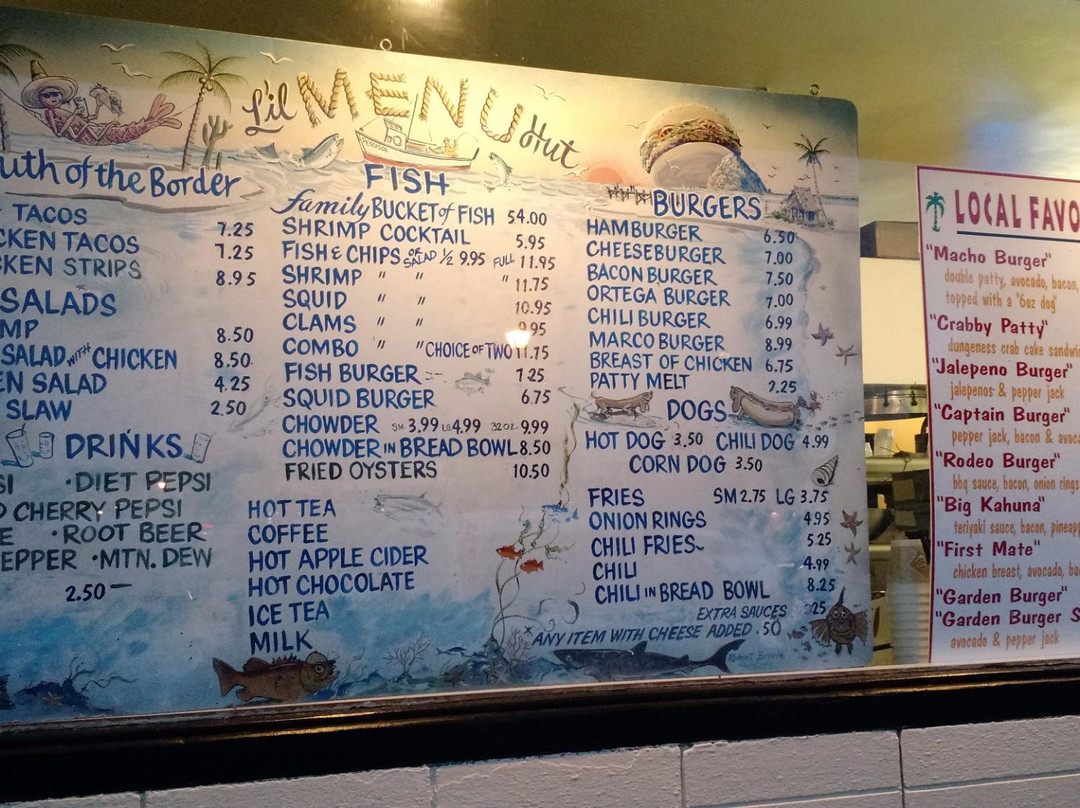 Lil MENU Hut
PESCADOR
South of the Border
TACOS 7.25
CKEN TACOS 7.25
CKEN STRIPS 8.95
SALADS
MP 8.50
SALAD WITH CHICKEN 8.50
EN SALAD 4.25
SLAW 2.50
DRINKS
SI • DIET PEPSI
D CHERRY PEPSI
E • ROOT BEER
EPPER • MTN. DEW
2.50
FISH
family BUCKET of FISH 54.00
SHRIMP COCKTAIL 5.95
FISH & CHIPS OR SALAD 1/2 9.95 FULL 11.95
SHRIMP " " " 11.75
SQUID " " 10.95
CLAMS " " 9.95
COMBO " " CHOICE OF TWO 11.75
FISH BURGER 7.25
SQUID BURGER 6.75
CHOWDER SM. 3.99 LG 4.99 32OZ. 9.99
CHOWDER IN BREAD BOWL 8.50
FRIED OYSTERS 10.50
HOT TEA
COFFEE
HOT APPLE CIDER
HOT CHOCOLATE
ICE TEA
MILK
BURGERS
HAMBURGER 6.50
CHEESEBURGER 7.00
BACON BURGER 7.50
ORTEGA BURGER 7.00
CHILI BURGER 6.99
MARCO BURGER 8.99
BREAST OF CHICKEN 6.75
PATTY MELT 2.25
DOGS
HOT DOG 3.50 CHILI DOG 4.99
CORN DOG 3.50
FRIES SM 2.75 LG 3.75
ONION RINGS 4.95
CHILI FRIES 5.25
CHILI 4.99
CHILI IN BREAD BOWL 8.25
EXTRA SAUCES .25
ANY ITEM WITH CHEESE ADDED .50
LOCAL FAVO
"Macho Burger"
double patty, avocado, bacon,
topped with a "6oz dog"
"Crabby Patty"
dungeness crab cake sandwi
"Jalepeno Burger"
jalepenos & pepper jack
"Captain Burger"
pepper jack, bacon & avoca
"Rodeo Burger"
bbq sauce, bacon, onion rings
"Big Kahuna"
teriyaki sauce, bacon, pineapp
"First Mate"
chicken breast, avocado, ba
"Garden Burger"
"Garden Burger S
avocado & pepper jack